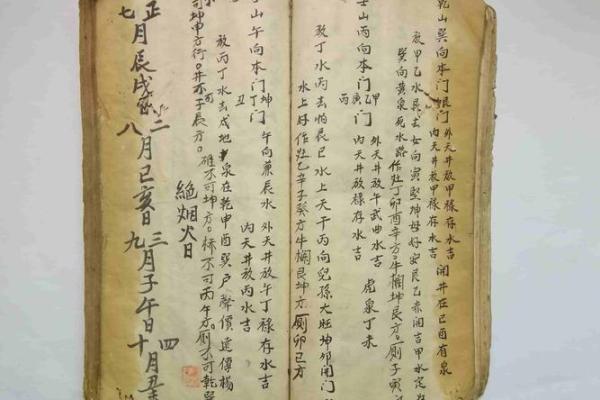 乾山巽向本门
外天井放甲祿存水吉
内天井放甲祿存水吉
開井在巳酉有泉
水長去女向寅堅坤母好安艮乙
吉甲水定
巽向黄泉死水路作灶丁卯酉辛方牛欄坤艮方厕子寅
壬山丙向本门
门
外天井放午武曲水吉
内天井放祿存水吉
虎泉丁未
放丁水丙去怕辰巳水上天干丙向兒孫大旺坤卯開门
水上好作灶乙辛子癸方牛欄艮坤方厕卯巳方
山午向本门
坤丁门丑
午向兼辰水
外天井放午丁祿存水吉
内天井放丙水吉
放丙丁水去戌地黄泉在乾申酉巽户聲價達傳楊
可坤申方行。井亦子辰方。碓不可坤方。床不可丙午方。厕不可乾
絶烟火日
正七月辰戌日
二八月巳亥日
三九月子午日
四十月丑